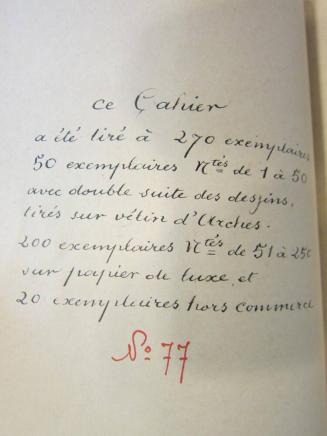 ce Cahier
a été tiré à 270 exemplaires
50 exemplaires Ntés de 1 à 50
avec double suite des dessins,
tirés sur vélin d'Arches.
200 exemplaires Ntés de 51 à 250
sur papier de luxe et
20 exemplaires hors commerce
No 77